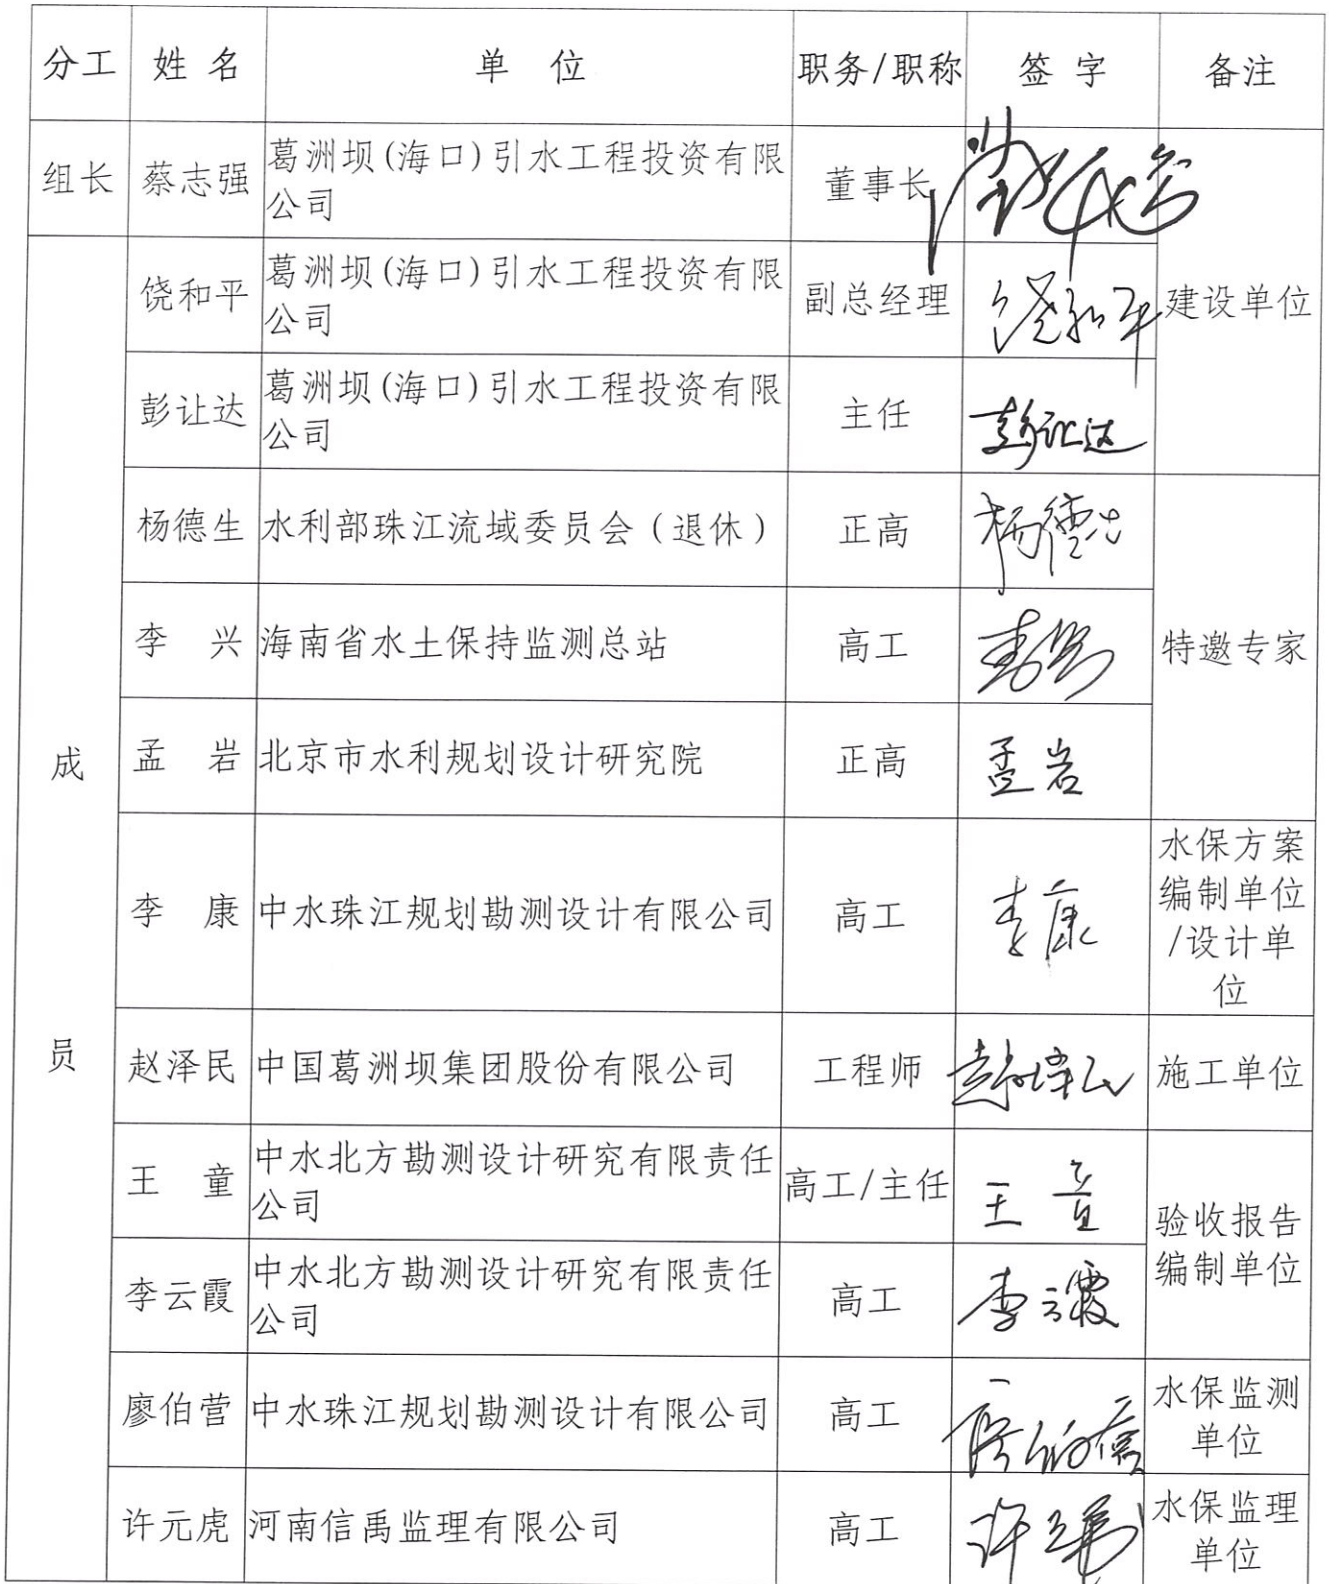 分工 姓 名 单 位 职务/职称 签 字 备注
组长 蔡志强 葛洲坝(海口)引水工程投资有限
公司 董事长
建设单位
成
员
饶和平 葛洲坝(海口)引水工程投资有限
公司 副总经理 饶和平
彭让达 葛洲坝(海口)引水工程投资有限
公司 主任 彭让达
杨德生 水利部珠江流域委员会（退休） 正高 杨德生
特邀专家
李 兴 海南省水土保持监测总站 高工
孟 岩 北京市水利规划设计研究院 正高 孟岩
李 康 中水珠江规划勘测设计有限公司 高工 李康
水保方案
编制单位
/设计单
位
赵泽民 中国葛洲坝集团股份有限公司 工程师 赵泽民 施工单位
王 童 中水北方勘测设计研究有限责任
公司 高工/主任 王童
验收报告
编制单位
李云霞 中水北方勘测设计研究有限责任
公司 高工 李云霞
廖伯营 中水珠江规划勘测设计有限公司 高工
水保监测
单位
许元虎 河南信禹监理有限公司 高工 许元虎
水保监理
单位